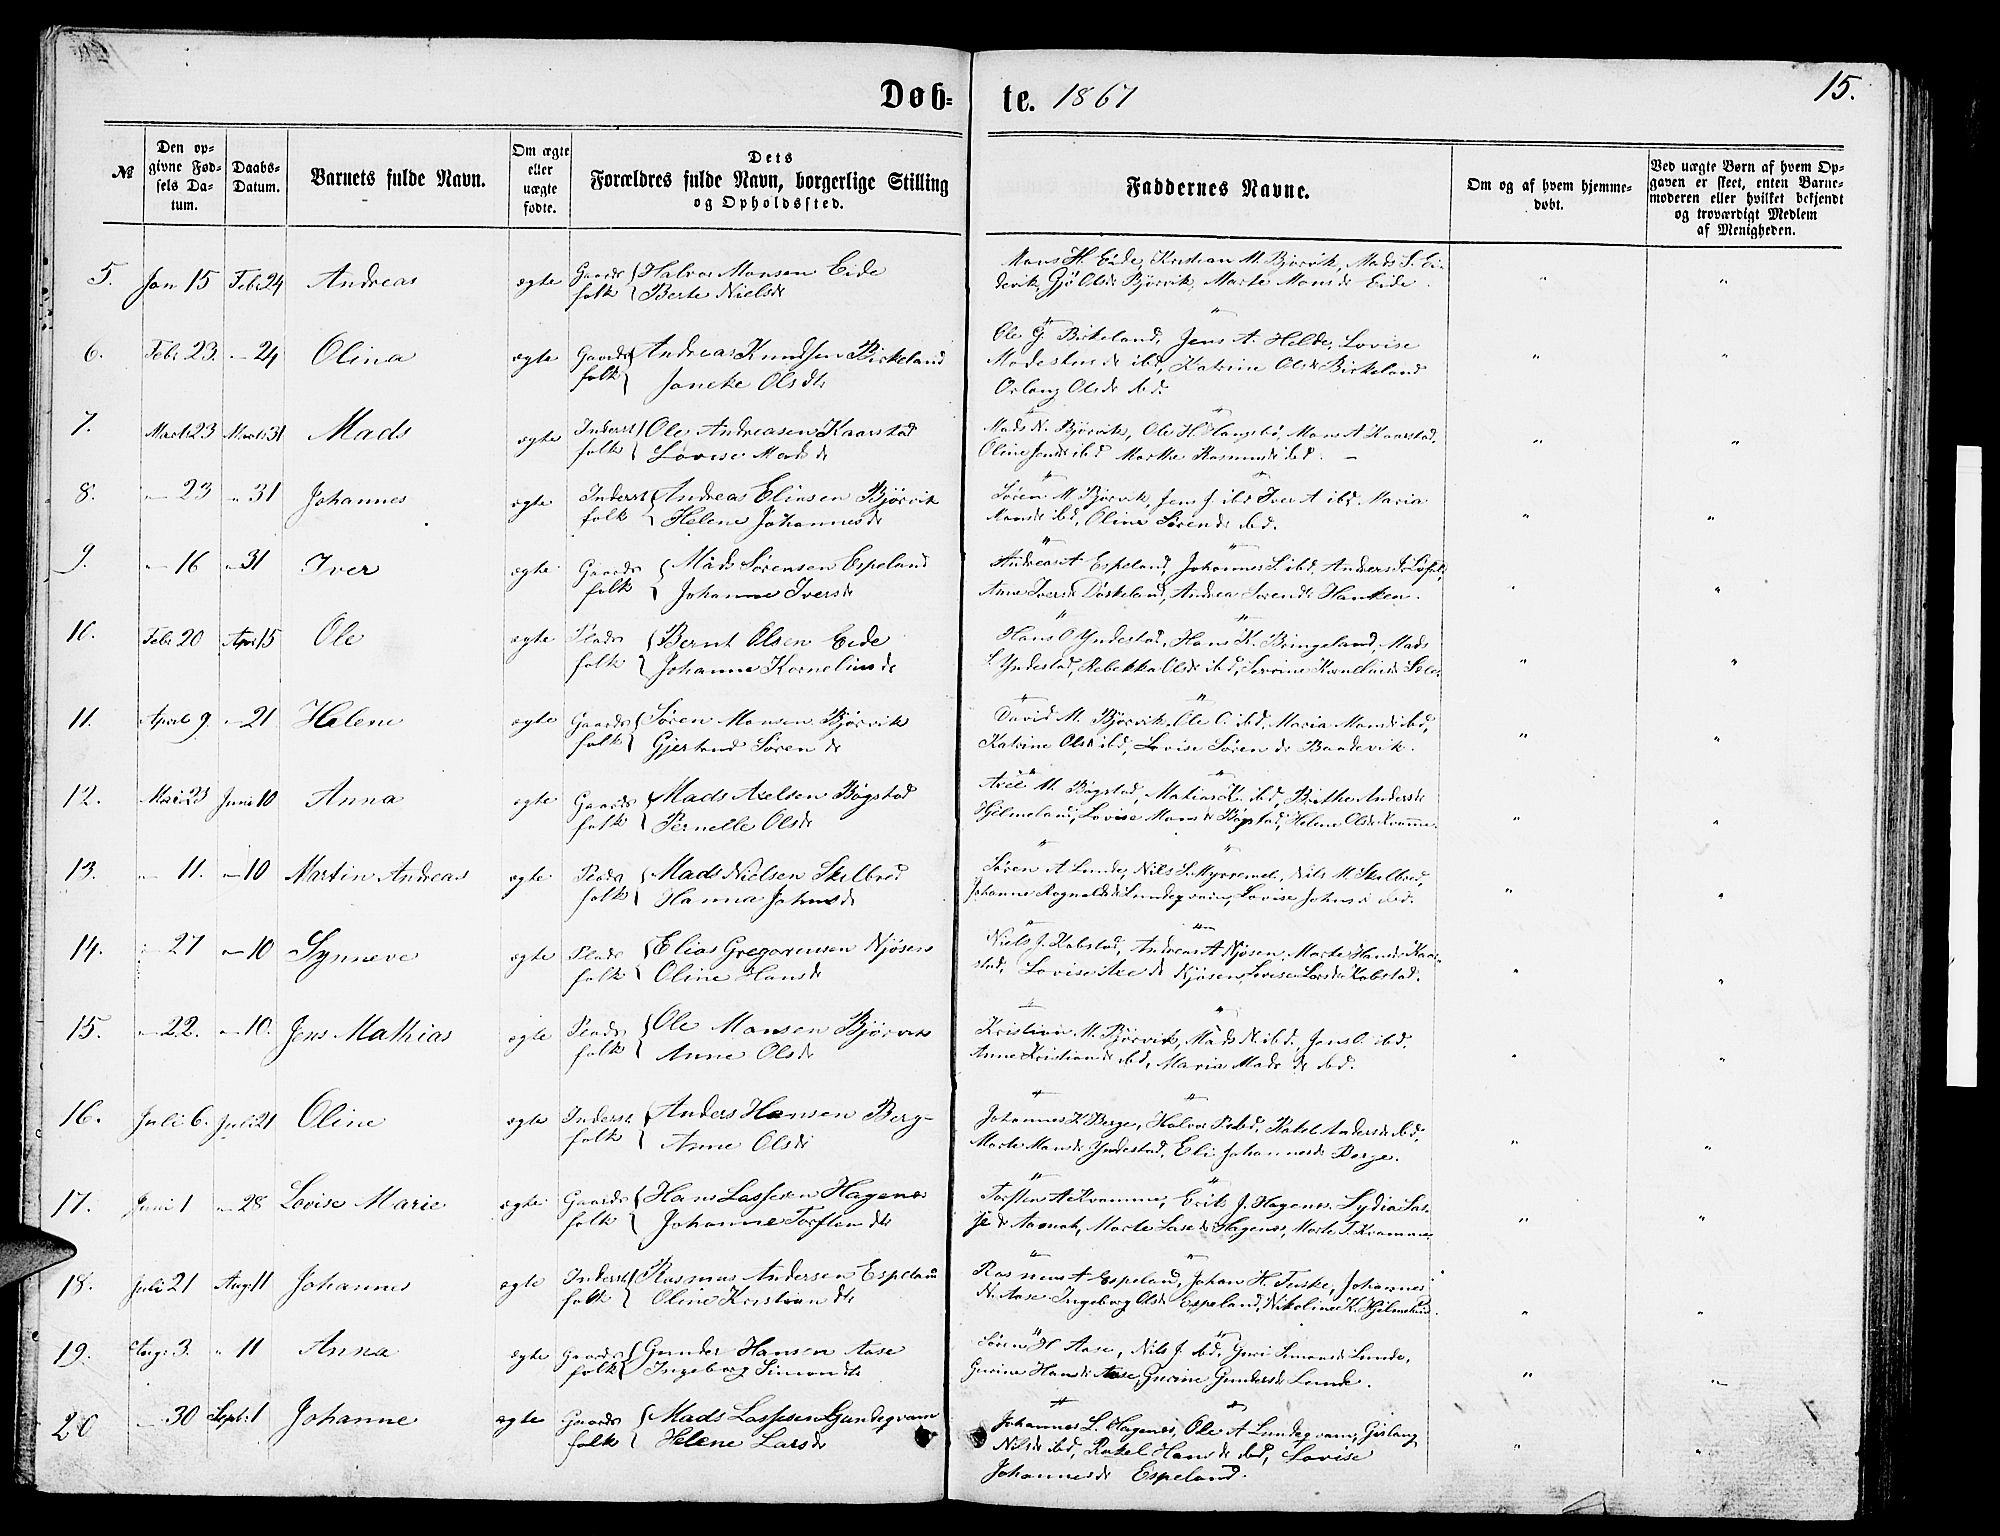 Døb-te. 1867
15.
№
Den opgivne Fødsels Datum.
Daabs-Datum.
Barnets fulde Navn.
Om ægte eller uægte fødte.
Dets Forældres fulde Navn, borgerlige Stilling og Opholdssted.
Faddernes Navne.
Om og af hvem hjemmedøbt.
Ved uægte Børn af hvem Opgaven er skeet, enten Barnemoderen eller hvilket bekjendt og troværdigt Medlem af Menigheden.
5. Jan 15 Febr 24 Andreas ægte Gaards folk Halvor Monsen Eide
Berte Nielsdr
Mons H. Eide, Kristian M. Bjørvik, Mads S. Ei-
devik, Olsdr Bjørvik, Marte Monsdr Eide.
6. Febr 23. " 24 Olina ægte Gaards folk Andreas Knudsen Birkeland
Janeke Olsdtr
Ole G. Birkeland, Jens A. Helde, Lovise
ibd, Katrine Olsdr Birkeland
Olsdr ibd.
7. Marts 23 Marts 31 Mads ægte Inderst folk Ole Andreasen Kaarstad
Lovise Madsdr
Mads N. Bjørvik, Ole H. Mons A Kaarstad,
Oline Jensdr ibd Marthe Rasmusdr ibd.
8. " 23 " 31 Johannes ægte Inderst folk Andreas Eliasen Bjørvik
Helene Johannesdr
Søren M Bjørvik, Jens J. ibd Iver A ibd, Maria
Monsdr ibd, Oline Sørensdr ibd.
9. " 16 " 31 Iver ægte Gaards folk Mads Sørensen Espeland
Johanne Iversdr
Andreas A Espeland, Johannes S. ibd, Anders S.
Anne Iversdr Døskeland, Andrea Sørensdr
10. Febr 20 Apr 15 Ole ægte Plads folk Bernt Olsen Eide
Johanne Korneliusdr
Hans O Yndestad, Hans K. Bringeland, Mads
S. Yndestad, Rebekka Olsdr ibd, Korneliusdr
11. April 9 " 21 Helene ægte Gaards folk Søren Monsen Bjørvik
Gjertrud Sørensdr
David M. Bjørvik, Ole O. ibd, Maria Monsdr ibd,
Katrine Olsdr ibd, Lovise Sørensdr
12. Mai 23 Juni 10 Anna ægte Gaards folk Mads Axelsen Bøgstad
Pernelle Olsdr
Axel M. Bøgstad, Mathias K. ibd, Brithe Andersdr
Hjelmeland, Lovise Monsdr Bøgstad, Helene Olsdr Kvamme
13. " 11. " 10 Martin Andreas ægte Plads folk Mads Nielsen Skilbred
Hanna Johnsdr
Søren A Lunde, Nils S. Myrremel, Nils M. Skilbred,
Johanne Rognaldsdr Lundeqvam, Lovise Johnsdr ibd.
14. " 27 " 10 Synneve ægte Plads folk Elias Gregoriusen Njøsen
Oline Hansdr
Niels J. Kobstad, Andreas A Njøsen, Marte Hansdr Kaar-
stad, Lovise Njøsen, Lovise Larsdr Kobstad.
15. " 22. " 10. Jens Mathias ægte Plads folk Ole Monsen Bjørvik
Anne Olsdr
Kristian M. Bjørvik, Mads N. ibd, Jens O. ibd.
Anne Kristiansdr ibd, Maria Madsdr ibd.
16. Juli 6. Juli 21 Oline ægte Inderst folk Anders Hansen Berg-
Anne Olsdr
Johannes K Berge, Halvor P. ibd, Rakel Andersdr ibd,
Marte Monsdr Yndestad, Eli Johannesdr Berge.
17. Juni 1 " 28 Lovise Marie ægte Gaards folk Hans Lassesen Hagenes
Johanne Torstensdtr
Torsten A Kvamme, Erik J. Hagenes, Lydia Las-
sedr Aamot, Marte Lassedr Hagenes, Marte T. Kvamme
18. Juli 21 Aug 11 Johannes ægte Inderst folk Rasmus Andersen Espeland
Oline Kristiansdtr
Rasmus A Espeland, Johan H. Johannes
N. Aase, Ingeborg Olsdr Espeland, Nikoline K. Hjelmeland.
19. Aug. 3. " 11 Anna ægte Gaards folk Gunder Hansen Aase
Ingeborg Simonsdtr
Søren H Aase, Nils J. ibd, Guri Simonsdr Lunde,
Gurine Hansdr Aase, Gurine Gundersdr Lunde.
20 " 30 Septbr 1 Johanne ægte Gaards folk Mads Lassesen Lundeqvam
Helene Larsdr
Johannes L. Hagenes, Ole A Lundeqvam,
Nilsdr ibd, Rakel Hansdr ibd, Lovise
Johannesdr Espeland.